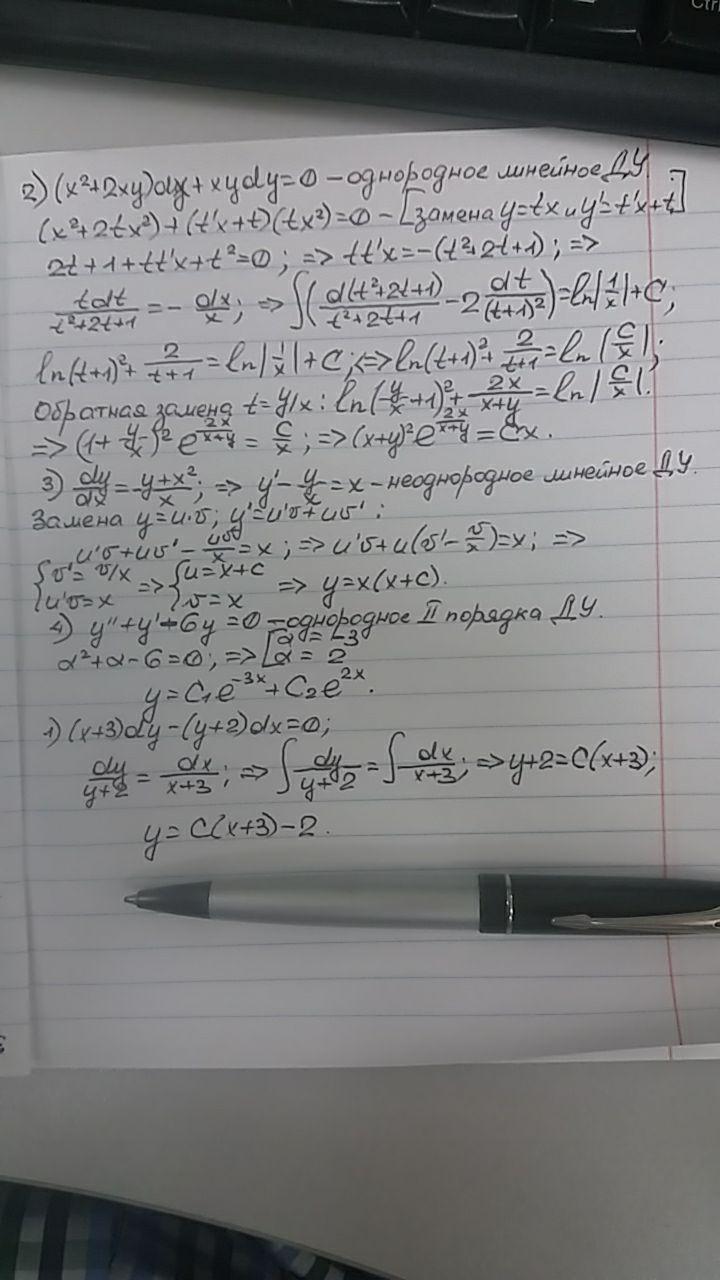 Ctrl
2) (x²+2xy)dx + xydy=0 – однородное линейное ДУ.
(x²+2tx²)+(t'x+t)(tx²)=0 – [замена y=tx и y'=t'x+t]
2t+1+tt'x+t²=0; => tt'x=-(t²+2t+1); =>
tdt/(t²+2t+1) = - dx/x; => ∫(d(t²+2t+1)/(t²+2t+1) - 2 dt/(t+1)²)=ln|1/x|+C;
ln(t+1)²+ 2/(t+1) = ln|1/x|+C; <=> ln(t+1)²+ 2/(t+1) = ln|C/x|;
Обратная замена t=y/x: ln(y/x+1)²+ 2x/(x+y) = ln|C/x|.
=> (1+ y/x)² e^(2x/(x+y)) = C/x; => (x+y)² e^(2x/(x+y)) = Cx.
3) dy/dx = (y+x²)/x; => y'- y/x = x - неоднородное линейное ДУ.
Замена y=u·v; y'=u'v+uv':
u'v+uv'- uv/x = x; => u'v+u(v'- v/x)=x; =>
{v'= v/x u'v=x => {u=x+c v=x => y=x(x+c).
4) y''+y'-6y=0 – однородное II порядка ДУ.
α²+α-6=0; => [α=-3 α=2
y=C₁e^(-3x)+C₂e^(2x).
1) (x+3)dy-(y+2)dx=0;
dy/(y+2) = dx/(x+3); => ∫ dy/(y+2) = ∫ dx/(x+3); => y+2=C(x+3);
y= C(x+3)-2.